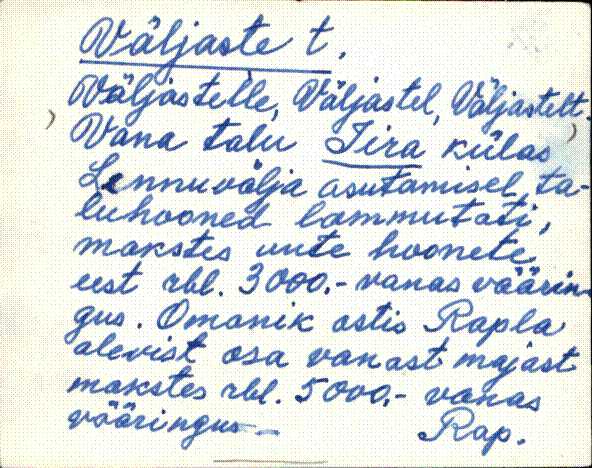 Väljaste t.
Väljastelle, Väljastel, Väljastelt.
Vana talu Iira külas
Lennuvälja asutamisel ta-
luhooned lammutati,
makstes uute hoonete
eest rbl. 3000.- vanas väärin-
gus. Omanik ostis Rapla
alevist osa vanast majast
makstes rbl. 5000.- vanas
vääringus -
Rap.